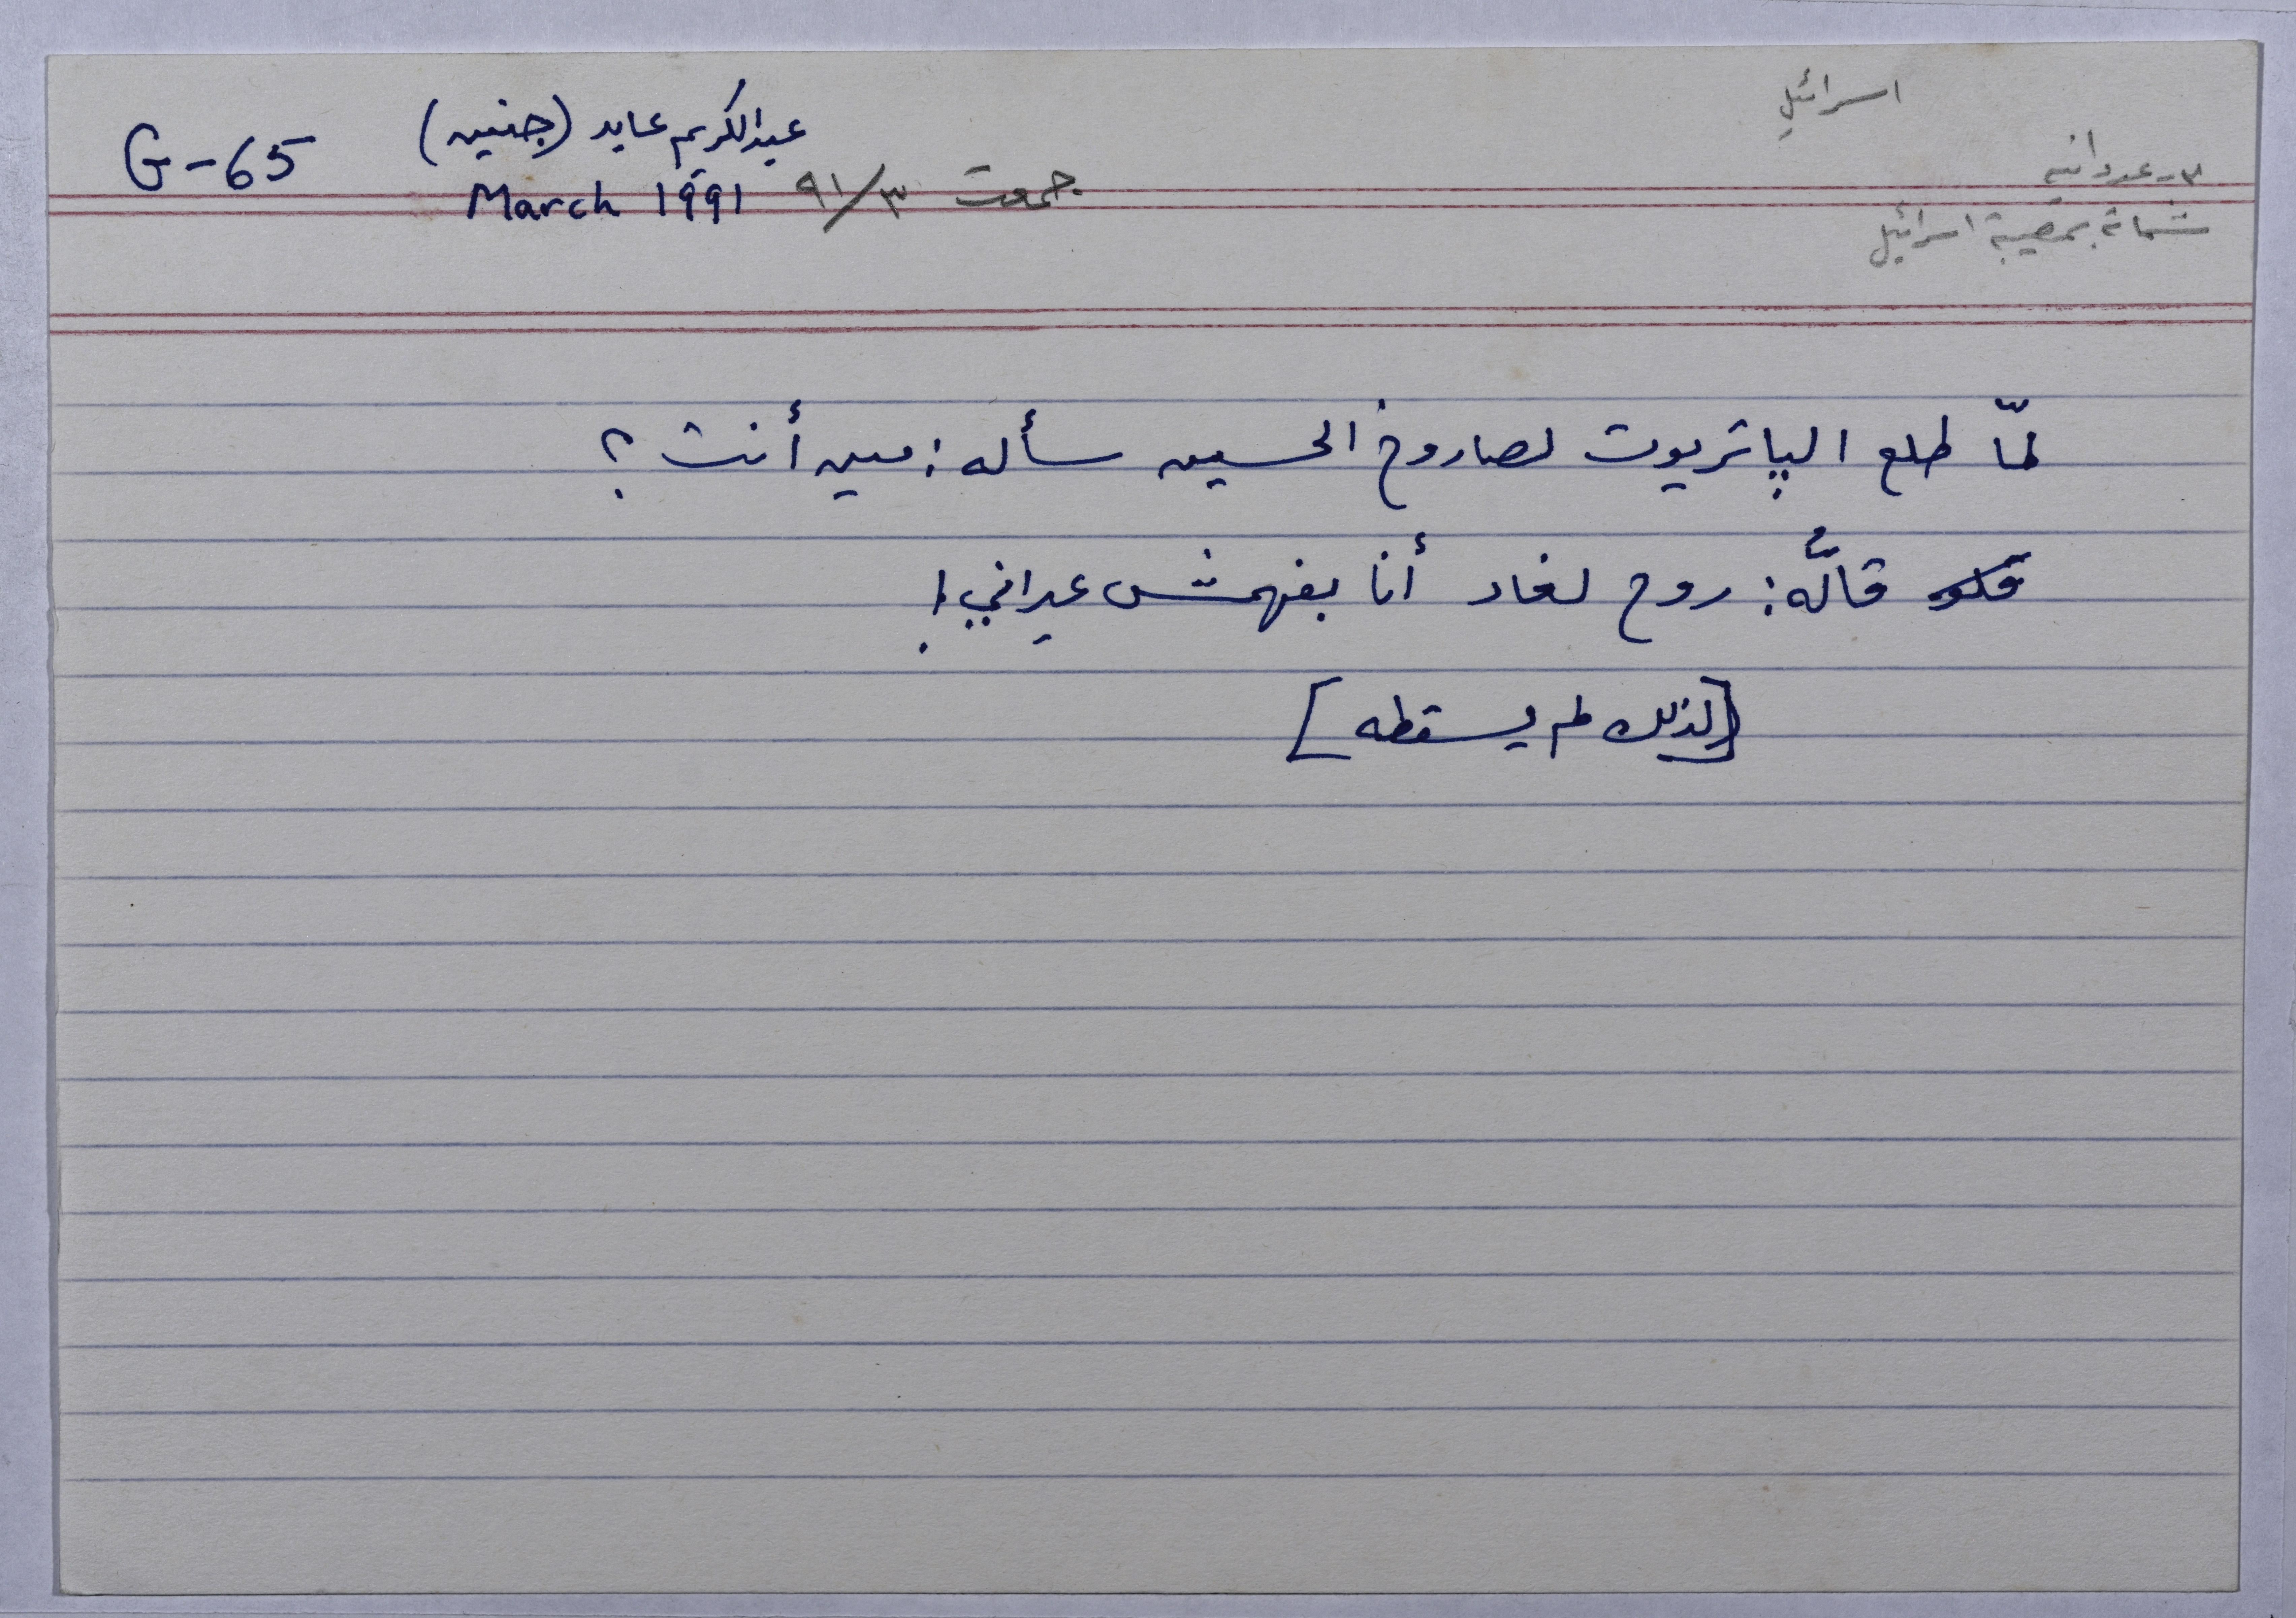 اسرائيل
٣- عدوانية
شماتة بمصيبة اسرائيل
عبدالكريم عابد (جنين)
G-65
جمعت ٩١/٣
March 1991
لمّا طلع الپاتريوت لصاروخ الحسين سأله: مين أنت؟
قالُّه: روح لغاد أنا بفهمش عبراني!
[لذلك لم يسقطه]